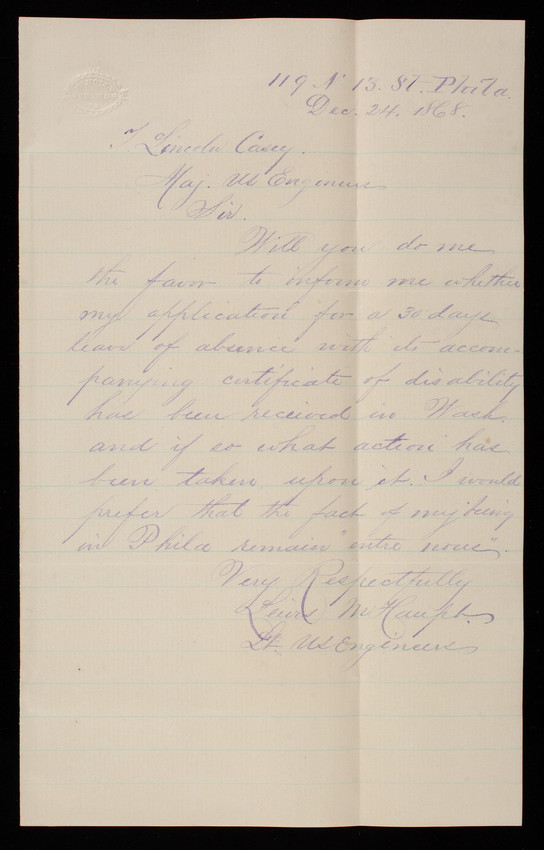 119 N 13. St. Phila.
Dec. 24. 1868.
T Lincoln Casey.
Maj. US Engineers
Sir.
Will you do me
the favor to inform me whether
my application for a 30 days
leave of absence with its accom-
panying certificate of disability
has been received in Wash.
and if so what action has
been taken upon it. I would
prefer that the fact of my being
in Phila remain "entre nous".
Very Respectfully
Lewis M Haupt.
Lt. US Engineers